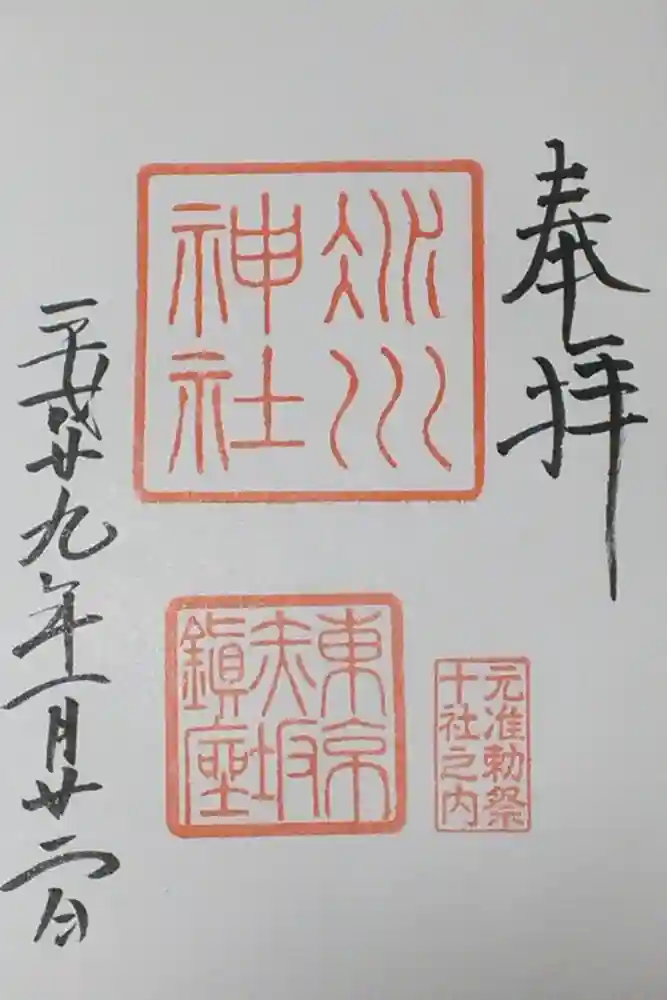 奉拝
氷川
神社
東京
赤坂
鎮座
元准勅祭
十社之内
平成廿九年一月廿二日